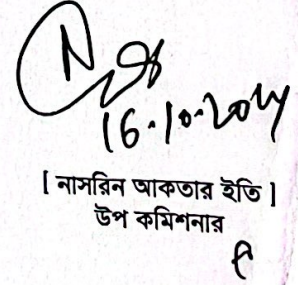 16.10.2024
[ নাসরিন আকতার ইতি ]
উপ কমিশনার